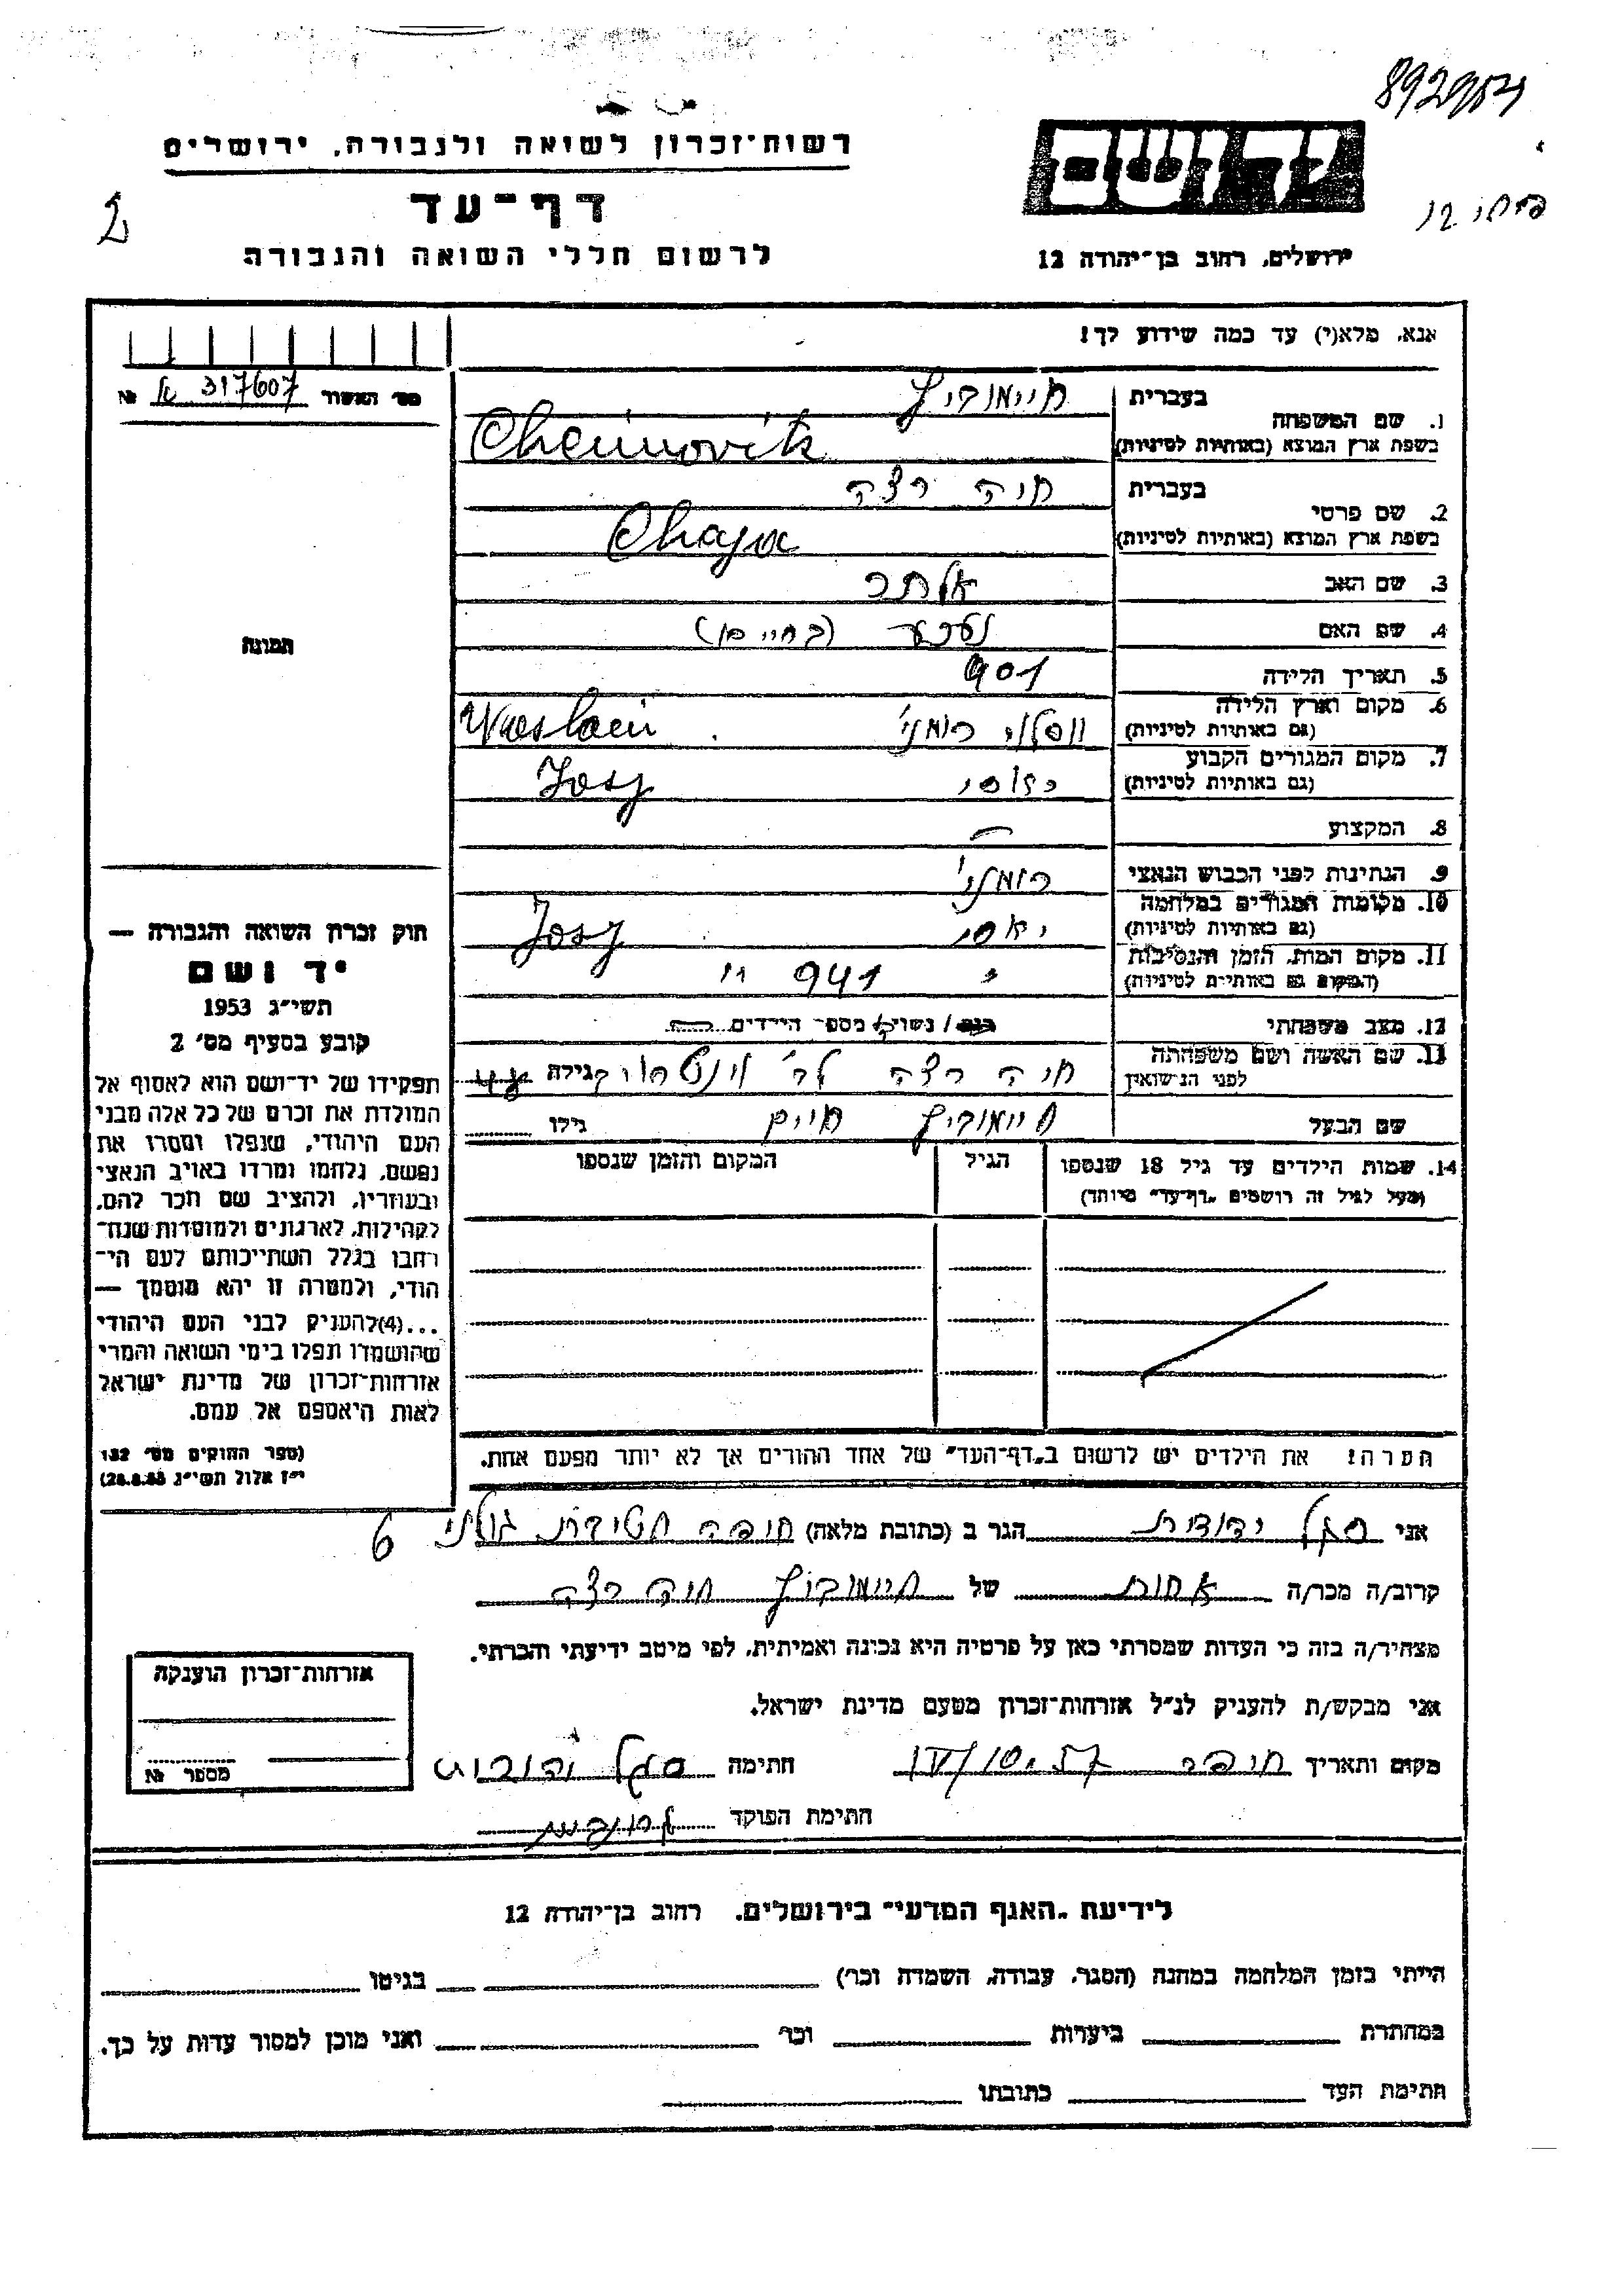 892954
רשות־זכרון לשואה ולגבורה, ירושלים
דף־עד
לרשום חללי השואה והגבורה
2
ידושם
ירושלים, רחוב בן־יהודה 12
אנא, מלא(י) עד כמה שידוע לך!
מס׳ האשור 317607 № 
1. שם המשפחה
בעברית חיימוביץ
בשפת ארץ המוצא (באותיות לטיניות) Cheimovitz
2. שם פרטי
בעברית חיה רצה
בשפת ארץ המוצא (באותיות לטיניות) Chaja
3. שם האב אלתר
4. שם האם (בחיים)
5. תאריך הלידה 901
6. מקום וארץ הלידה
(גם באותיות לטיניות) ווסלוי רומני׳ Waslaeu
7. מקום המגורים הקבוע
(גם באותיות לטיניות) יאסי Josy
8. המקצוע —
9. הנתינות לפני הכבוש הנאצי רומני׳
10. מקומות המגורים במלחמה
(גם באותיות לטיניות) יאסי Josy
11. מקום המות, הזמן והנסיבות
(המקום גם באותיות לטיניות) " 941 "
12. מצב משפחתי רווק / נשוי / מספר הילדים
13. שם האשה ושם משפחתה
לפני הנישואין חיה רצה לב׳ גילה
שם הבעל חיימוביץ חיים גילו
14. שמות הילדים עד גיל 18 שנספו
(מעל לגיל זה רושמים „דף־עד״ מיוחד)
הגיל
המקום והזמן שנספו
הערה: את הילדים יש לרשום ב„דף־העד״ של אחד ההורים אך לא יותר מפעם אחת.
תמונה
חוק זכרון השואה והגבורה —
יד ושם
תשי״ג 1953
קובע בסעיף מס׳ 2
תפקידו של יד־ושם הוא לאסוף אל
המולדת את זכרם של כל אלה מבני
העם היהודי, שנפלו ומסרו את
נפשם, נלחמו ומרדו באויב הנאצי
ובעוזריו, ולהציב שם וזכר להם,
לקהילות, לארגונים ולמוסדות שנח־
רחבו בגלל השתייכותם לעם הי־
הודי, ולמטרה זו יהא מוסמך —
...(4)להעניק לבני העם היהודי
שהושמדו ונפלו בימי השואה והמרי
אזרחות־זכרון של מדינת ישראל
לאות היאספם אל עמם.
(ספר החוקים מס׳ 132
י״ז אלול תשי״ג 28.8.53)
אני סגל יהודית הגר ב (כתובת מלאה) חיפה חטיבת גולני 6
קרוב/ה מכר/ה אחות של חיימוביץ חיה רצה
מצהיר/ה בזה כי העדות שמסרתי כאן על פרטיה היא נכונה ואמיתית, לפי מיטב ידיעתי והכרתי.
אני מבקש/ת להעניק לנ״ל אזרחות־זכרון מטעם מדינת ישראל.
מקום ותאריך חיפה 10.57 חתימה סגל יהודית
חתימת הפוקד
אזרחות־זכרון הוענקה
מספר №
לידיעת „האגף המדעי״ בירושלים, רחוב בן־יהודה 12
הייתי בזמן המלחמה במחנה (הסגר, עבודה, השמדה וכר׳) בגיטו
במחתרת ביערות וכר׳ ואני מוכן למסור עדות על כך.
חתימת העד כתובתו